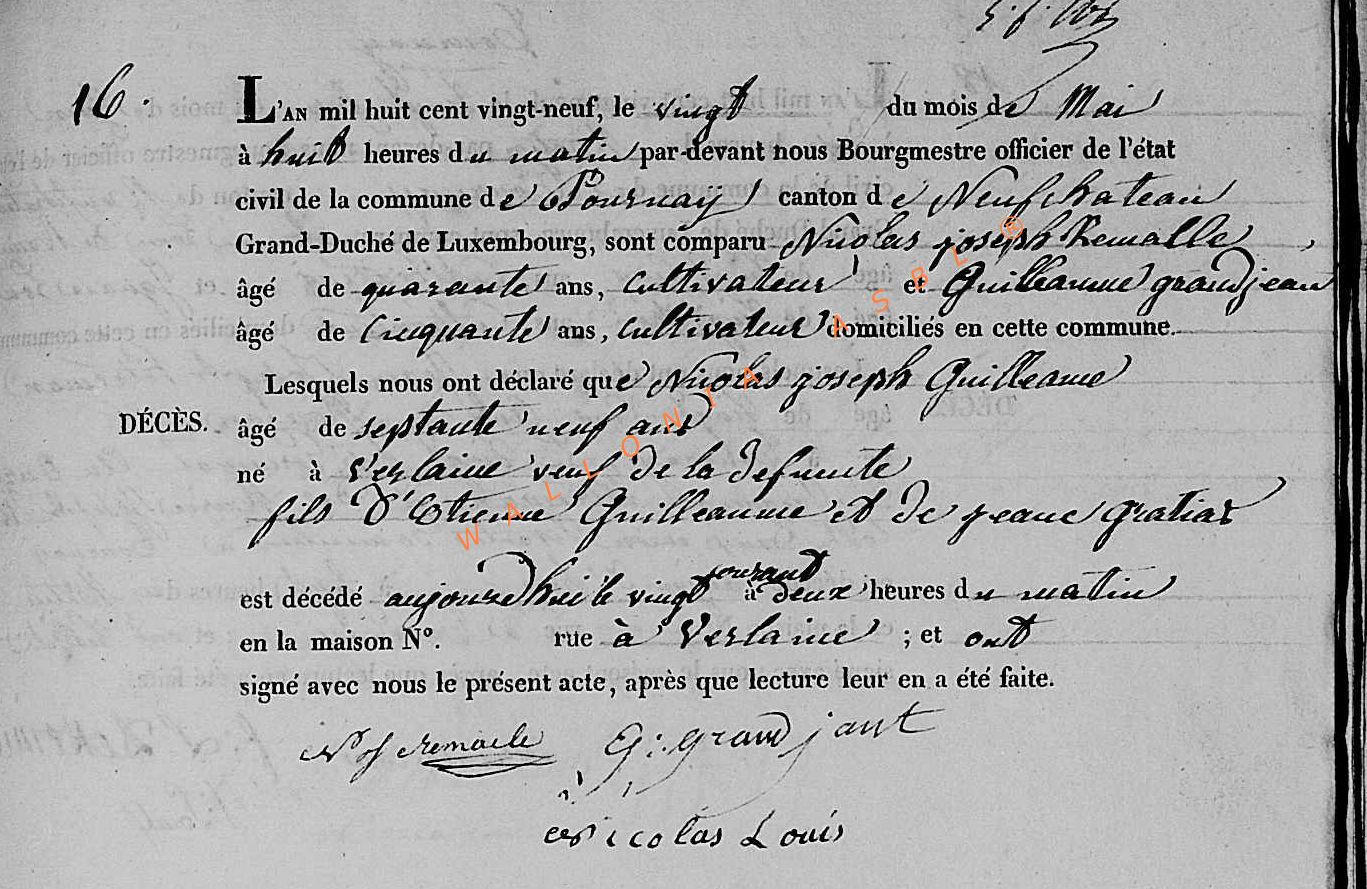 16.
L'AN mil huit cent vingt-neuf, le vingt du mois de Mai
à huit heures du matin par-devant nous Bourgmestre officier de l'état
civil de la commune de Tournay canton de Neufchateau
Grand-Duché de Luxembourg, sont comparu Nicolas joseph Remacle
âgé de quarante ans, cultivateur et Guilleaume grandjean
âgé de cinquante ans, cultivateur domiciliés en cette commune.
Lesquels nous ont déclaré que Nicolas joseph Guilleaume
DÉCÈS.
âgé de septante neuf ans
né à Verlaine veuf de la defunte
fils d'Etienne Guilleaume et de jeane gratias
est décédé aujourdhui le vingt courant à deux heures du matin
en la maison N°. rue à Verlaine ; et ont
signé avec nous le présent acte, après que lecture leur en a été faite.
remacle G: grand jant
Nicolas Louis
WALLONIA ASBL